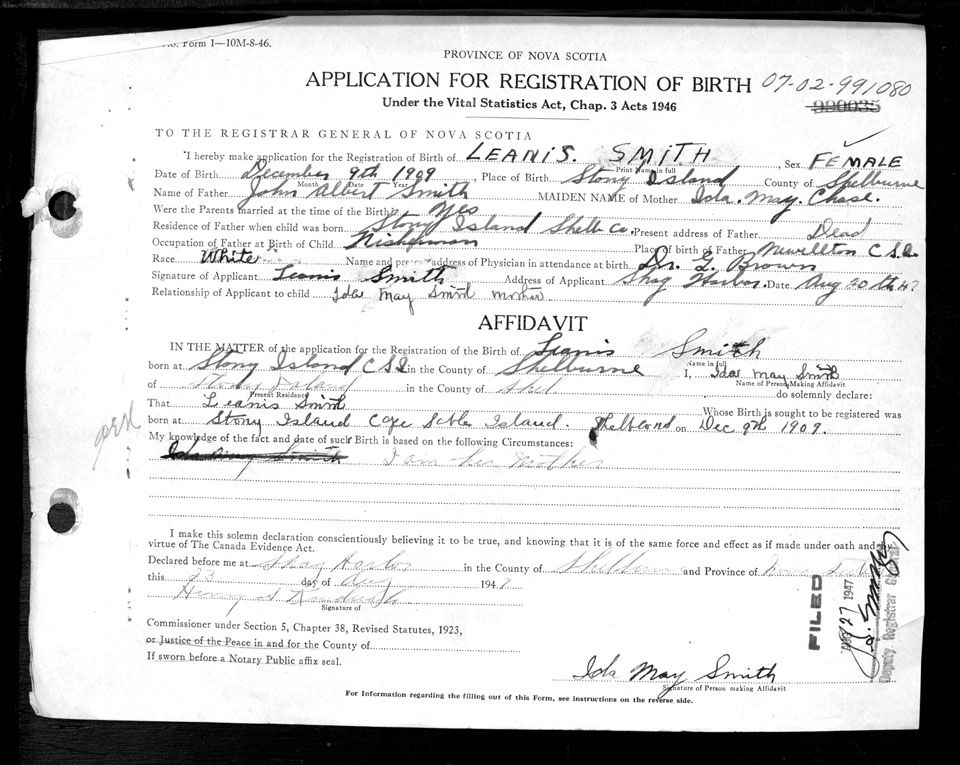 Form 1—10M-8-46.
PROVINCE OF NOVA SCOTIA
APPLICATION FOR REGISTRATION OF BIRTH 07-02-991080
Under the Vital Statistics Act, Chap. 3 Acts 1946 990035
TO THE REGISTRAR GENERAL OF NOVA SCOTIA
I hereby make application for the Registration of Birth of LEANIS. SMITH, Sex FEMALE
Print Name in full
Date of Birth December 9th 1909, Place of Birth Stony Island County of Shelburne
Month Date Year
Name of Father John Albert Smith MAIDEN NAME of Mother Ida. May. Chase.
Were the Parents married at the time of the Birth? Yes
Residence of Father when child was born Stony Island Shelb Co. Present address of Father Dead
Occupation of Father at Birth of Child Fisherman Place of birth of Father Newellton C.S.I.
Race White Name and present address of Physician in attendance at birth Dr. L. Brown
Signature of Applicant Leanis Smith Address of Applicant Shag Harbor. Date Aug 20th 47
Relationship of Applicant to child Ida May Smith mother
AFFIDAVIT
IN THE MATTER of the application for the Registration of the Birth of Leanis Smith
Name in full
born at Stony Island C S I in the County of Shelburne I, Ida May Smith
Name of Person Making Affidavit
of Stony Island in the County of Shel do solemnly declare:
Present Residence
That Leanis Smith Whose Birth is sought to be registered was
born at Stony Island Cape Sable Island. on Dec 9th 1909.
My knowledge of the fact and date of such Birth is based on the following Circumstances:
Ida May Smith I am her Mother
I make this solemn declaration conscientiously believing it to be true, and knowing that it is of the same force and effect as if made under oath and
virtue of The Canada Evidence Act.
Declared before me at Shag Harbor in the County of Shelburne and Province of Nova
this 23 day of Aug 1947
Signature of
Commissioner under Section 5, Chapter 38, Revised Statutes, 1923,
or Justice of the Peace in and for the County of
If sworn before a Notary Public affix seal.
Ida May Smith
Signature of Person making Affidavit
For Information regarding the filling out of this Form, see instructions on the reverse side.
FILED
27 1947
Deputy Registrar General